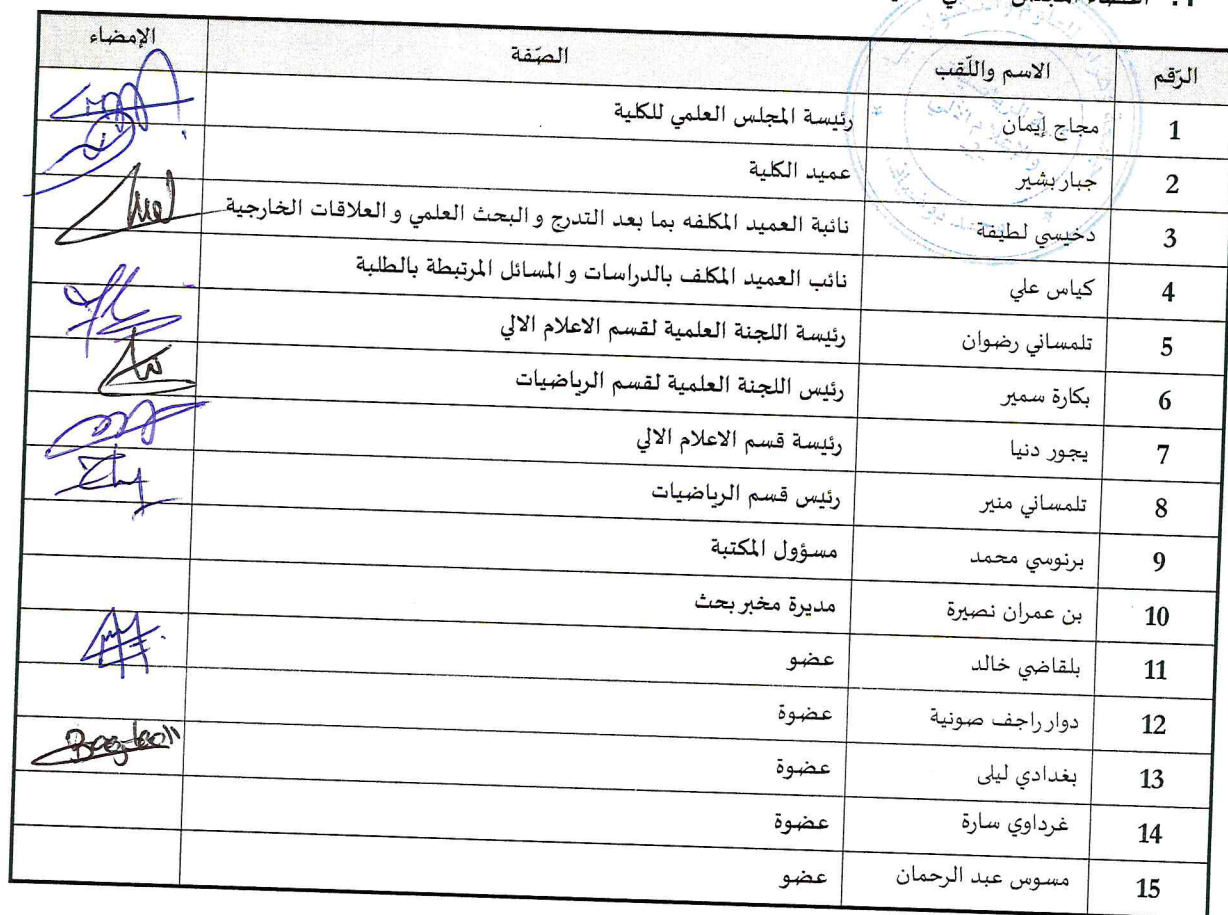 الرّقم الاسم واللّقب الصّفة الإمضاء
1 مجاج إيمان رئيسة المجلس العلمي للكلية
2 جبار بشير عميد الكلية
3 دخيسي لطيفة نائبة العميد المكلفه بما بعد التدرج و البحث العلمي و العلاقات الخارجية
4 كياس علي نائب العميد المكلف بالدراسات و المسائل المرتبطة بالطلبة
5 تلمساني رضوان رئيسة اللجنة العلمية لقسم الاعلام الالي
6 بكارة سمير رئيس اللجنة العلمية لقسم الرياضيات
7 يجور دنيا رئيسة قسم الاعلام الالي
8 تلمساني منير رئيس قسم الرياضيات
9 برنوسي محمد مسؤول المكتبة
10 بن عمران نصيرة مديرة مخبر بحث
11 بلقاضي خالد عضو
12 دوار راجف صونية عضوة
13 بغدادي ليلى عضوة
14 غرداوي سارة عضوة
15 مسوس عبد الرحمان عضو